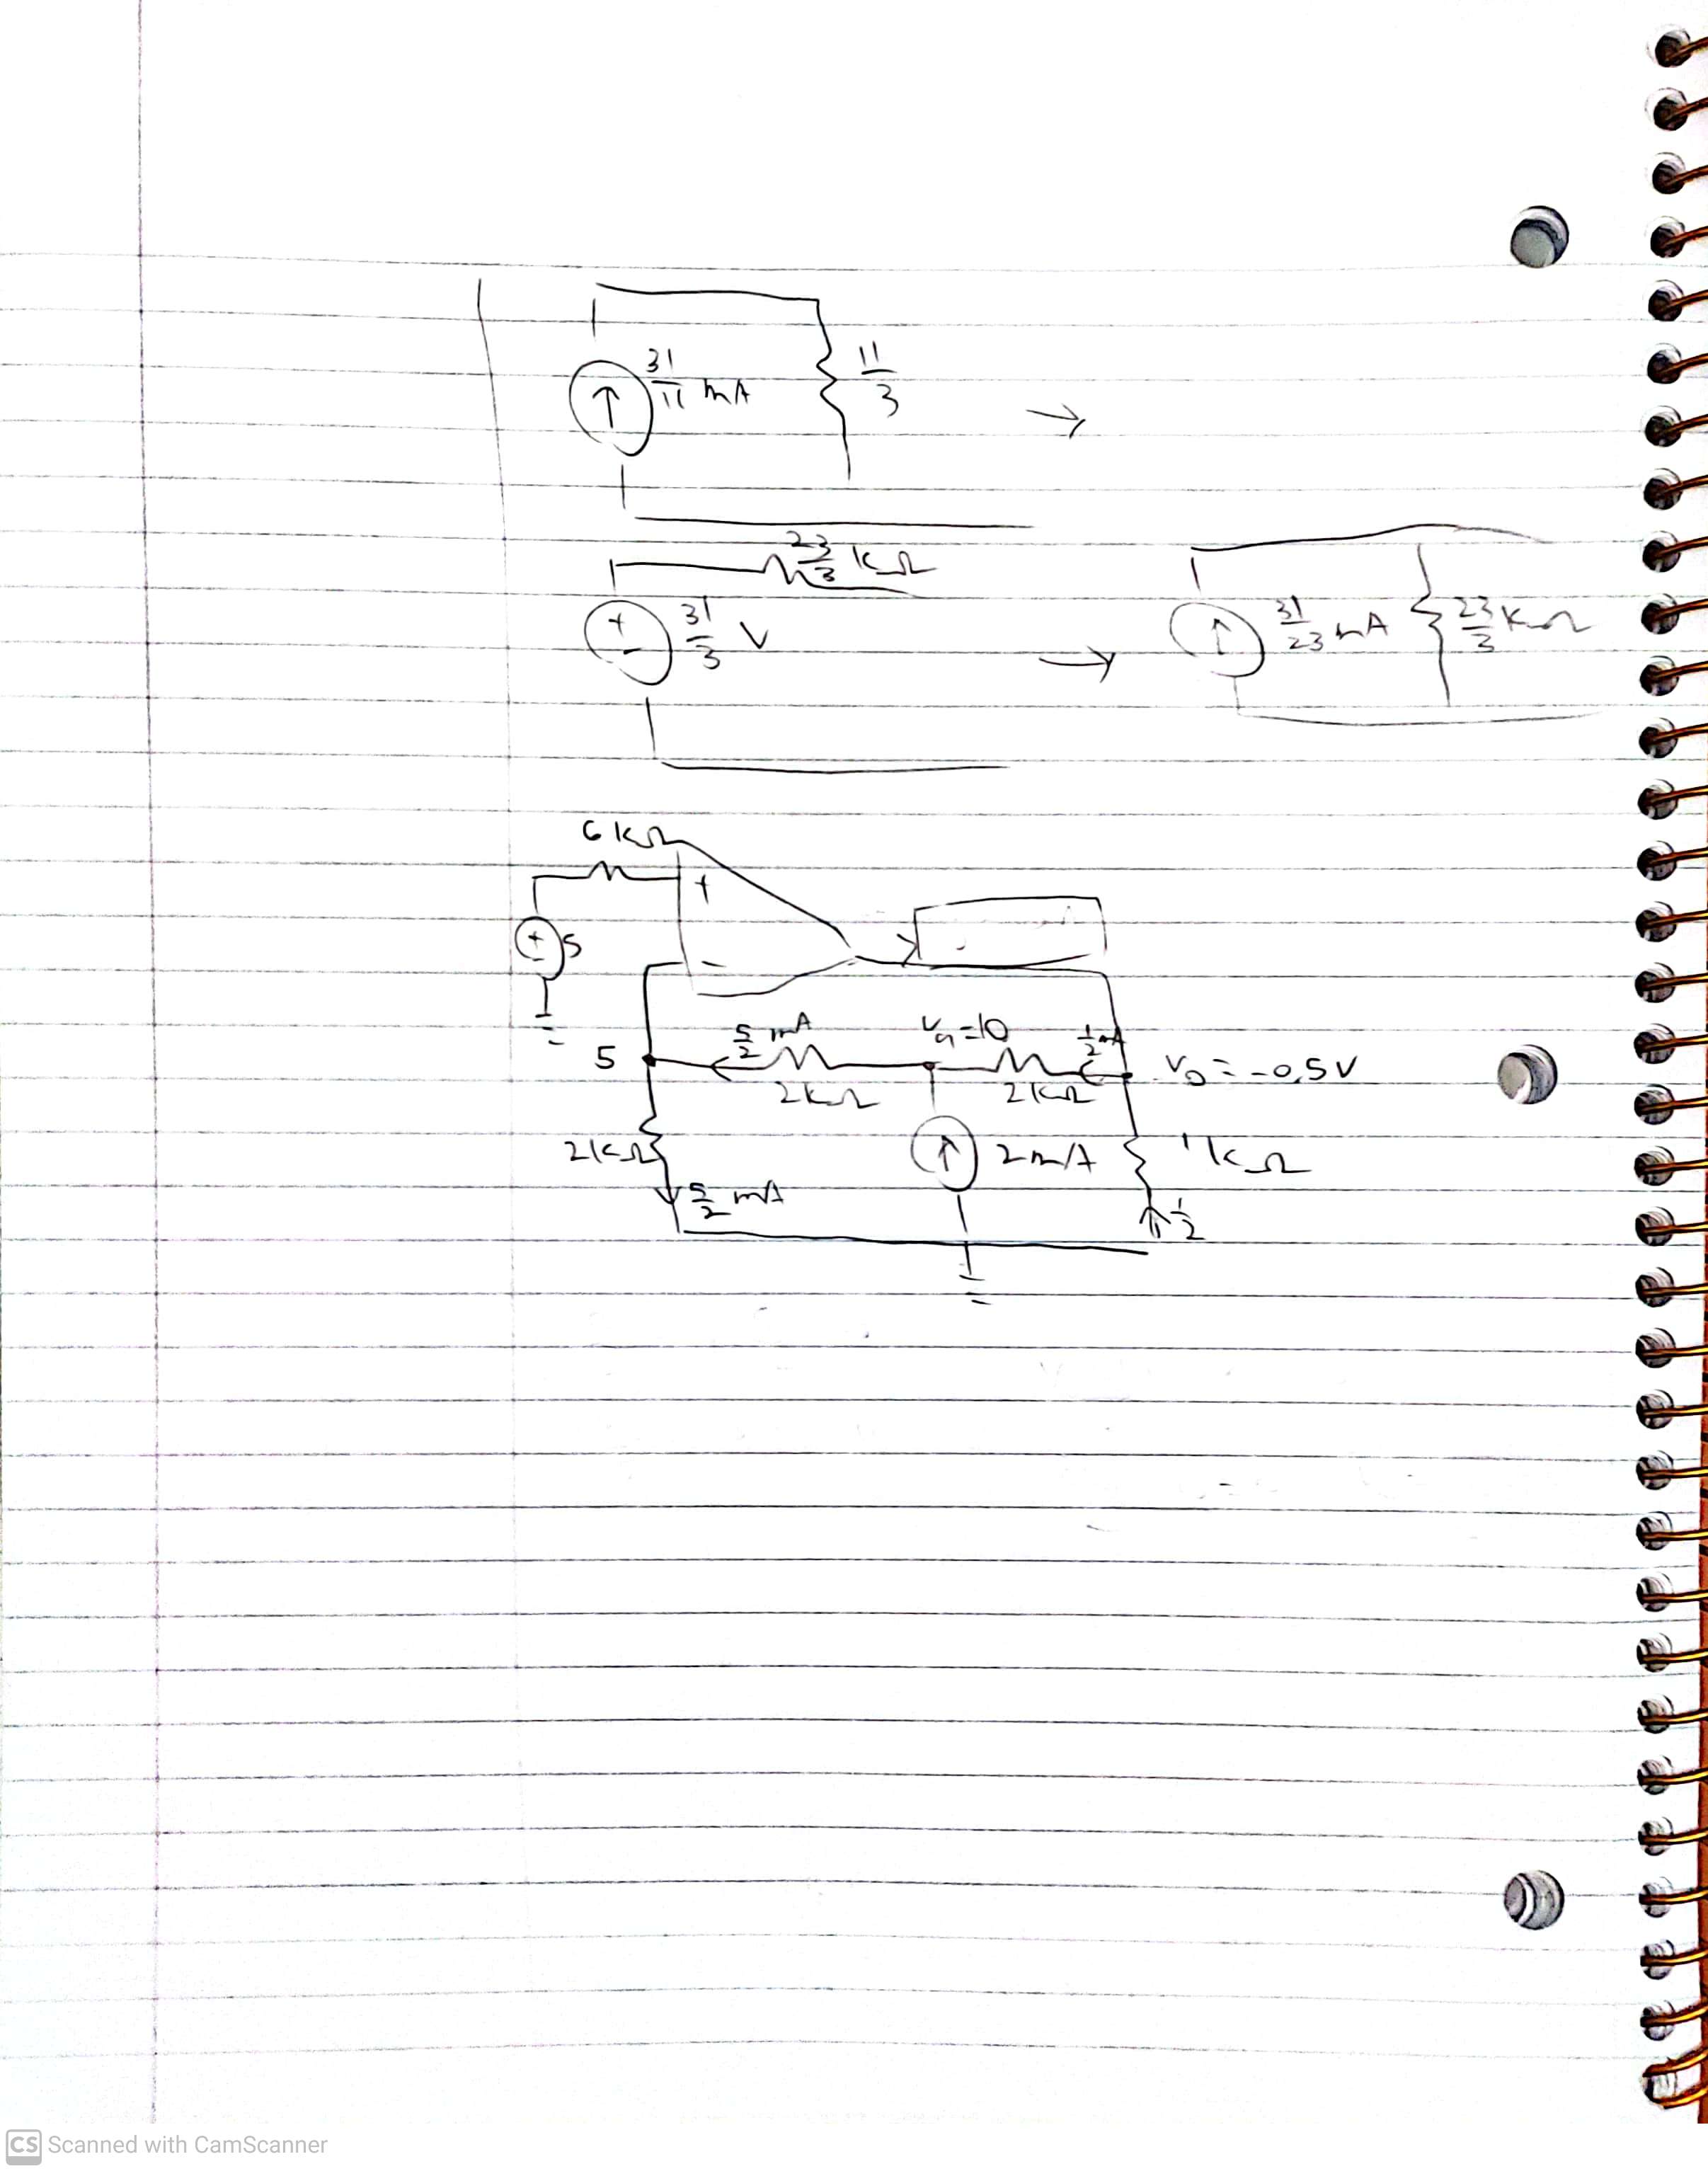 31/11 mA 11/3 →
23/3 kΩ
+ - 31/3 V → 31/23 mA 23/3 kΩ
6 kΩ
+
+ - 5
-
5/2 mA Va=10 1/2 mA
5 2kΩ 2kΩ Vo = -0.5V
2kΩ 2mA 1kΩ
5/2 mA 1/2
CS Scanned with CamScanner